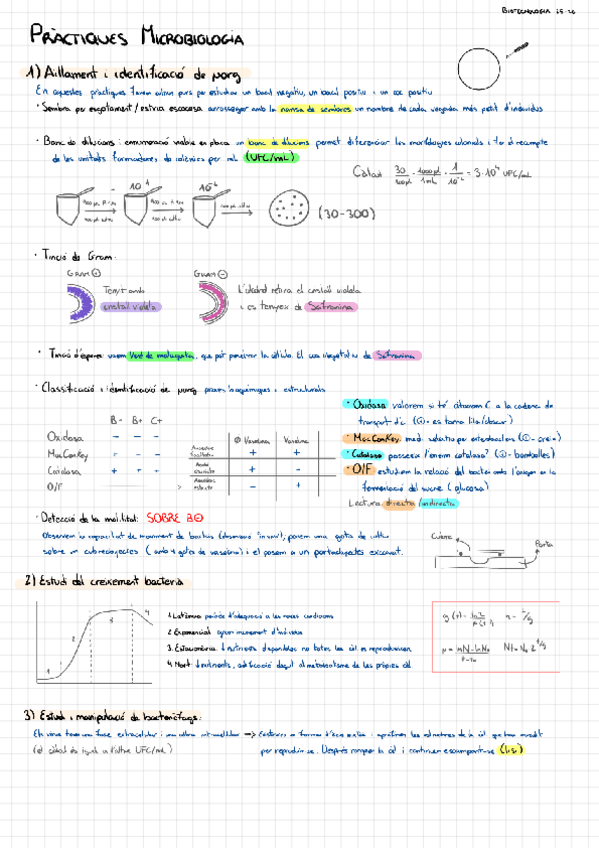 BIOTECNOLOGIA 25-26
PRÀCTIQUES MICROBIOLOGIA
1) Aïllament i identificació de µorg
En aquestes pràctiques farem cultius purs per estudiar un bacil negatiu, un bacil positiu i un coc positiu
· Sembra per esgotament / estria escocesa: arrossegar amb la nansa de sembres un nombre de cada vegada més petit d'individus
· Banc de dilucions i enumeració viable en placa: un banc de dilucions permet diferenciar les morfologies colonials i fer el recompte
de les unitats formadores de colònies per mL (UFC/mL)
Càlcul: 30/100µl · 1000µl/1mL · 1/10⁻² = 3·10⁴ UFC/mL
(30-300)
· Tinció de Gram:
GRAM ⊕
GRAM ⊖
Tenyit amb
cristall violeta
L'alcohol retira el cristall violeta
i es tenyeix de Safranina
· Tinció d'espores: usem Verd de malaquita, que pot penetrar la cèl·lula. El usa vegetatiu de Safranina
· Classificació i identificació de µorg: proves bioquímiques i estructurals
B- B+ C+
Oxidasa - - -
MacConkey + - -
Catalasa + + +
O/F
Ø Vaselina Vaselina
Anaerobi facultatiu + +
Aerobi + -
Anaerobi estricte - +
· Oxidasa: valorem si té citocrom C a la cadena de
transport d'e⁻ (⊕- es torna lila/obscur)
· MacConkey: medi selectiu per enterobacteris (⊕- creix)
· Catalasa: posseeix l'enzim catalasa? (⊕- bombolles)
· O/F: estudiem la relació del bacteri amb l'oxigen en la
fermentació del sucre (glucosa)
Lectura: directa / indirecta
· Detecció de la motilitat: SOBRE B⊖
Observem la capacitat de moviment de bacteris, posem una gota de cultiu
sobre un cubreobjectes (amb 4 gotes de vaselina) i el posem a un portaobjectes excavat.
Cubre
Porta
2) Estudi del creixement bacterià
1 2 3 4
1. Latència: període d'adequació a les noves condicions
2. Exponencial: augment d'individus
3. Estacionària: nutrients disponibles no totes les cèl. es reprodueixen
4. Mort: ↓ nutrients, acidificació degut al metabolisme de les pròpies cèl
g(t) = ln2/µ(t⁻¹) n = t/g
µ = lnN - lnN₀ / t - t₀ Nt = N₀ 2^t/g
3) Estudi i manipulació de bacteriòfags:
Els virus tenen una fase extracel·lular i una altra intracel·lular →
(el càlcul és igual a l'altre UFC/mL)
per reproduir-se. Després rompen la cèl i continuen escampant-se (lisi)